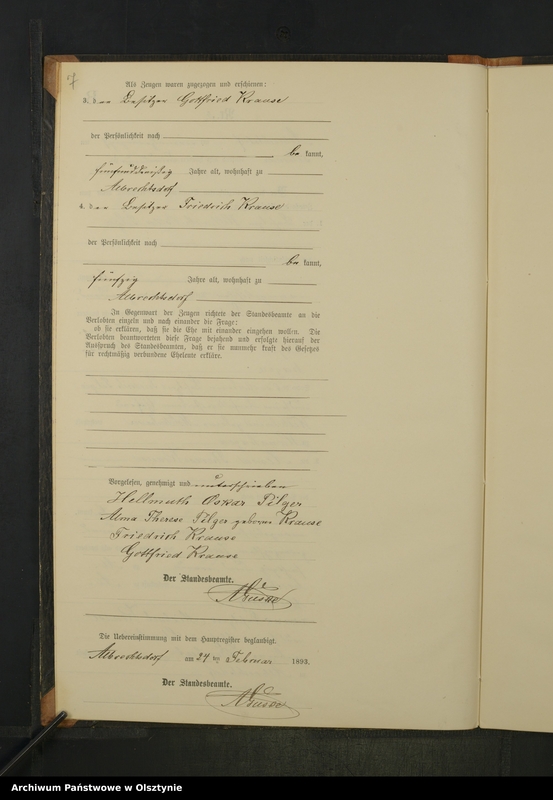 7
Als Zeugen waren zugezogen und erschienen:
3. der Besitzer Gottfried Krause
der Persönlichkeit nach
be kannt,
fünfunddreißig Jahre alt, wohnhaft zu
Albrechtsdorf
4. der Besitzer Friedrich Krause
der Persönlichkeit nach
be kannt,
fünfzig Jahre alt, wohnhaft zu
Albrechtsdorf
In Gegenwart der Zeugen richtete der Standesbeamte an die
Verlobten einzeln und nach einander die Frage:
ob sie erklären, daß sie die Ehe mit einander eingehen wollen. Die
Verlobten beantworteten diese Frage bejahend und erfolgte hierauf der
Ausspruch des Standesbeamten, daß er sie nunmehr kraft des Gesetzes
für rechtmäßig verbundene Eheleute erkläre.
Vorgelesen, genehmigt und unterschrieben
Hellmuth Oskar Pilger
Alma Therese Pilger geborne Krause
Friedrich Krause
Gottfried Krause
Der Standesbeamte.
Die Uebereinstimmung mit dem Hauptregister beglaubigt.
Albrechtsdorf am 24 ten Februar 1893.
Der Standesbeamte.
Archiwum Państwowe w Olsztynie